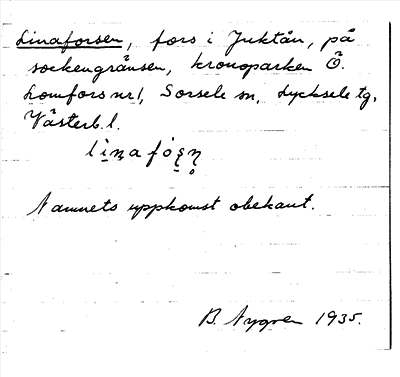 Linaforsen, fors i Juktån, på
sockengränsen, kronoparken Ö.
Lomfors nr 1, Sorsele sn, Lycksele tg,
Västerb. l.
Namnets uppkomst obekant.
B. Nygren 1935.